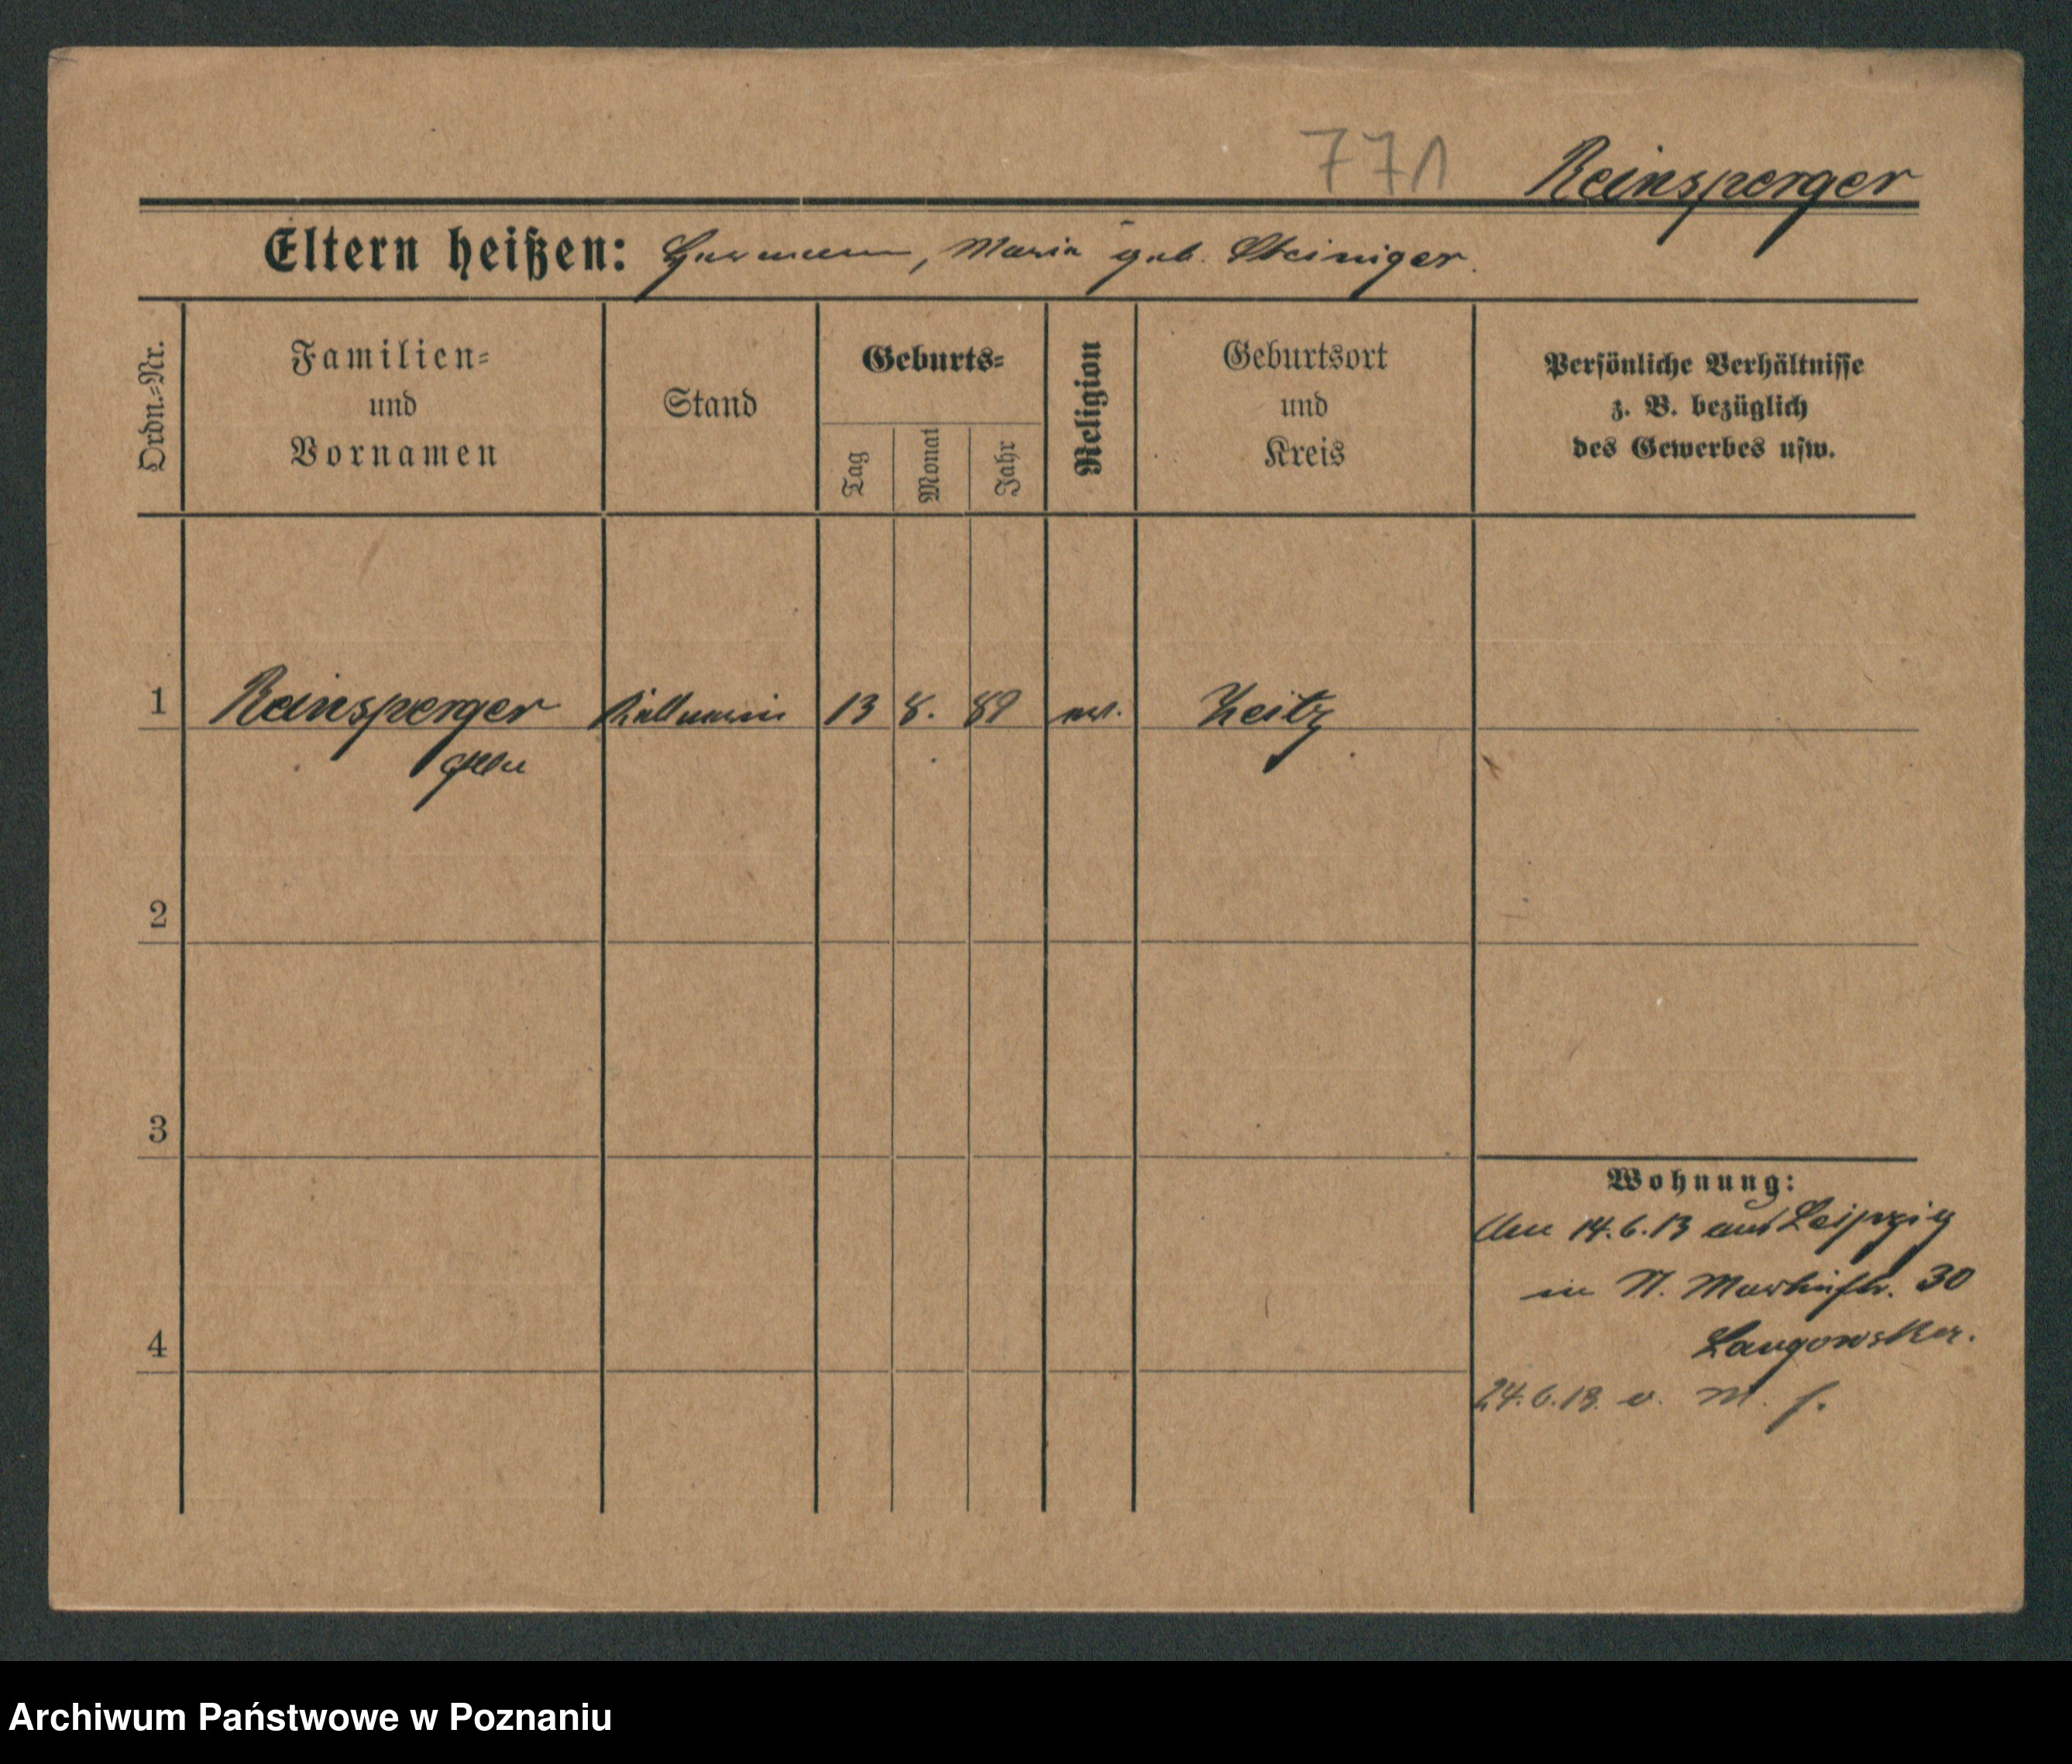 771 Reinsperger
Eltern heißen: Hermann, Maria geb. Steiniger.
Ordn.-Nr.
Familien-
und
Vornamen
Stand
Geburts-
Tag
Monat
Jahr
Religion
Geburtsort
und
Kreis
Persönliche Verhältnisse
z. B. bezüglich
des Gewerbes usw.
1 Reinsperger 13 8. 89 ev. Zeitz
2
3
4
Wohnung:
14.6.13 aus Leipzig
in St. Martinstr. 30
Langowska.
24.6.13. v. M.
Archiwum Państwowe w Poznaniu